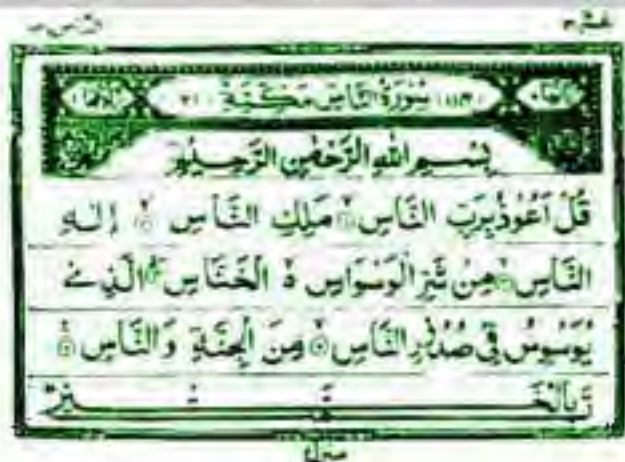 عم ٣٠
الناس ١١٤
سُوْرَةُ النَّاسِ مَكِّيَّةٌ
بِسْمِ اللهِ الرَّحْمٰنِ الرَّحِيْمِ
قُلْ اَعُوْذُ بِرَبِّ النَّاسِ ۙ مَلِكِ النَّاسِ ۙ اِلٰهِ
النَّاسِ ۙ مِنْ شَرِّ الْوَسْوَاسِ ۙ الْخَنَّاسِ ۙ الَّذِيْ
يُوَسْوِسُ فِيْ صُدُوْرِ النَّاسِ ۙ مِنَ الْجِنَّةِ وَالنَّاسِ
منزل